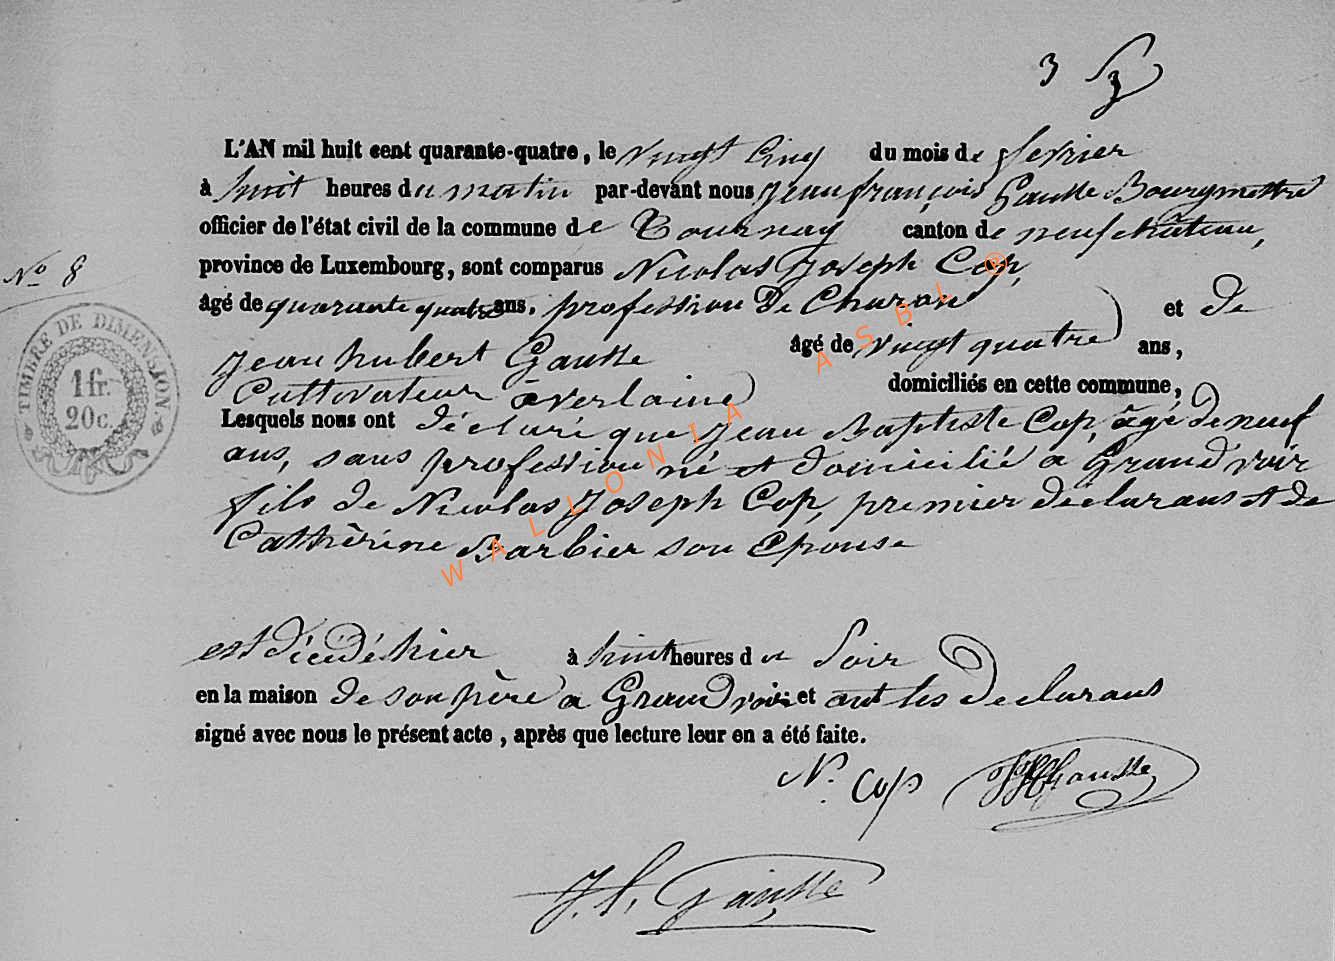 3 3
L'AN mil huit cent quarante-quatre, le vingt cinq du mois de fevrier
à huit heures du matin par-devant nous Jean françois Gausse Bourgmestre
officier de l'état civil de la commune de Tournay canton de neufchâteau,
province de Luxembourg, sont comparus Nicolas Joseph Cop,
N° 8
âgé de quarante quatre ans, profession De Charon et de
Jean hubert Gausse âgé de vingt quatre ans,
Cultivateur à verlaine domiciliés en cette commune,
Lesquels nous ont déclaré que Jean Baptiste Cop, âgé de neuf
ans, sans profession né et domicilié a Grandvoir
fils de Nicolas Joseph Cop, premier declarans et de
Cathèrine Barbier son Epouse
est décédé hier à huit heures du Soir
en la maison de son père a Grandvoir et ont les declarans
signé avec nous le présent acte, après que lecture leur en a été faite.
N. Cop JHGausse
J. f. Gausse
TIMBRE DE DIMENSION
1 fr.
20 c.
WALLONIA ASBL ®